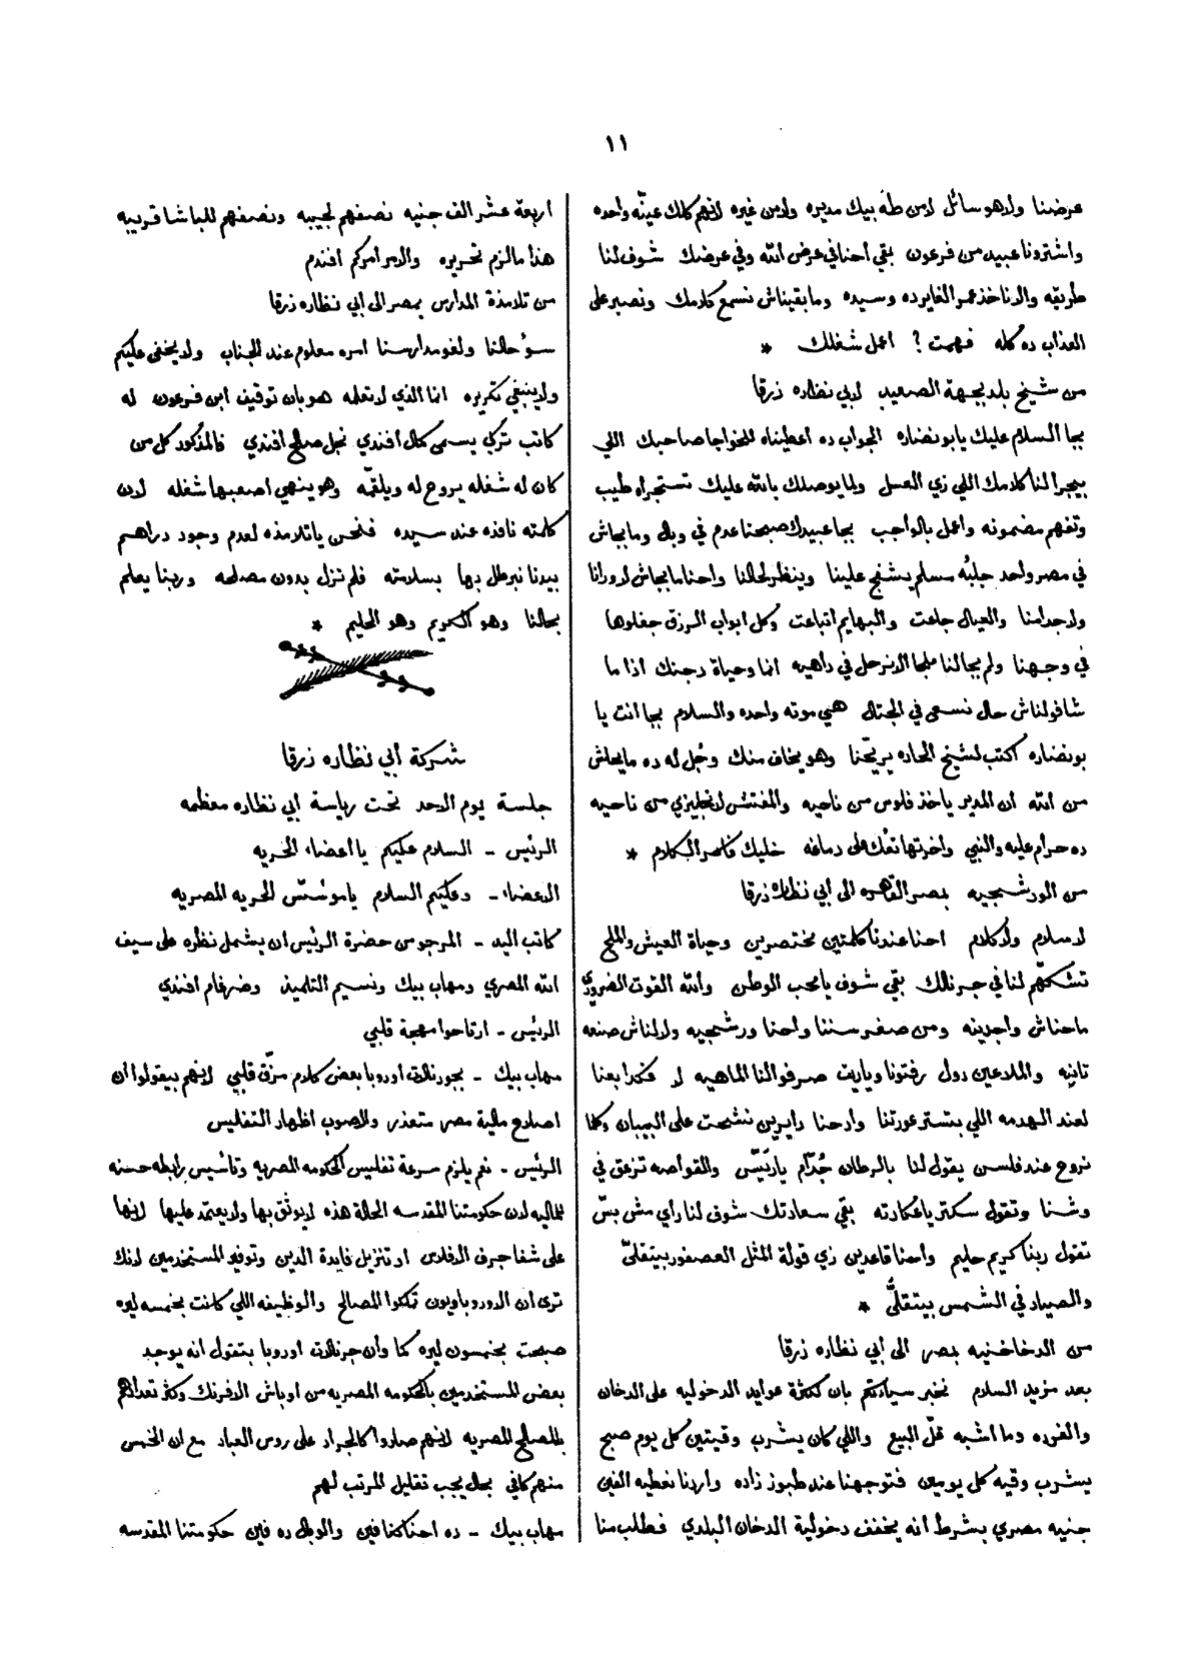 ١١
عرضنا ولاهو سائل لا من طه بيك مديره ولا من غيره لانهم كلك عينّه واحده
واشترونا عبيد من فرعون بقي أحنا في عرض الله وفي عرضك شوف لنا
طريقه والا ناخذ عمر الغايرده وسيده وما بقيناش نسمع كلامك ونصبر على
العذاب ده كله فهمت ? اعمل شغلك *
من شيخ بلد بجهة الصعيد لابي نظاره زرقا
بجا السلام عليك يا بو نضاره الجواب ده أعطيناه للخواجا صاحبك اللي
بيجرا لنا كلامك اللي زي العسل ولما يوصلك بالله عليك تستجراه طيب
وتفهم مضمونه واعمل بالواجب بجا عبيدك صبحنا عدم في وبال وما بجاش
في مصر واحد جلبُه مسلم يشفج علينا وينظر لحالنا واحنا ما بجاش لا ورانا
ولا جدامنا والعيال جاعت والبهايم اتباعت وكل ابواب الرزق جفلوها
في وجهنا ولم بجا لنا ملجا الا نرحل في داهيه انما وحياة دجنك اذا ما
شافولناش حال نسعى في الجتال هي موته واحده والسلام بجا انت يا
بو نضاره اكتب لشيخ الحاره يريّحنا وهو يخاف منك وجُل له ده ما يحلش
من الله أن المدير ياخذ فلوس من ناحيه والمفتش لانجليزي من ناحيه
ده حرام عليه والنبي وأخرتها تفك على دماغه خليك فاكر الكلام *
من الورشجيه بمصر القاهره الى أبي نظاره زرقا
لا سلام ولا كلام احنا عندنا كلمتين مختصرين وحياة العيش والملح
تشكهّم لنا في جرنالك بقي شوف يا محب الوطن والله القوت الضروري
ما حناش واجدينه ومن صغر سننا واحنا ورشجيه ولا لناش صنعه
تانيه والملاعين دول رفتونا وياريت صرفوا لنا الماهيه لا فكدا بعنا
لعند الهدمه اللي بتستر عورتنا وادحنا دايرين نشحت على البيبان وكلما
نروح عند فلسن يقول لنا بالرطان جُدّام يا رَيّس والقواصه تزعق في
وشنا وتقول سكتر يا عكارته بقي سعادتك شوف لنا رأي مش بسّ
تقول ربنا كريم حليم وأحنا قاعدين زي قولة المثل العصفور بيتقلىّ
والصياد في الشمس بيتقلىُّ *
من الدخاخنيه بمصر الى أبي نظاره زرقا
بعد مزيد السلام نخبر سيادتكم بان لكثرة عوايد الدخوليه على الدخان
والفرده وما اشبه قلّ البيع واللي كان يشرب وقيتين كل يوم صبح
يشرب وقيه كل يومين فتوجهنا عند طبوز زاده واردنا نعطيه الفين
جنيه مصري بشرط انه يخفف دخولية الدخان البلدي فطلب منا
اربعة عشر الف جنيه نصفهم لجيبه ونصفهم للباشا قريبه
هذا ما لزم تحريره والامر أمركم افندم
من تلامذة المدارس بمصر الى أبي نظاره زرقا
سوٴ حالنا ولغو مدارسنا امره معلوم عند الجناب ولا يخفى عليكم
ولا ينبغي تكريره انما الذي لا تعلمه هو بان توقيف ابن فرعون له
كاتب تركي يسمى كمال أفندي نجل صالح أفندي فالمذكور كل من
كان له شغله يروح له ويلقمّه وهو ينهي اصعبها شغله لان
كلمته نافذه عند سيده فنحن يا تلامذه لعدم وجود دراهم
بيدنا نبرطل بها بسلامته فلم نزل بدون مصلحه وربنا يعلم
بحالنا وهو الكريم وهو الحليم *
شركة أبي نظاره زرقا
جلسة يوم الاحد تحت رياسة أبي نظاره معظمه
الرئيس - السلام عليكم يا أعضاء الحريه
الاعضاء - وعليكم السلام يا موٴسّس الحريه المصريه
كاتب اليد - المرجو من حضرة الرئيس ان يشمل نظره على سيف
الله المصري ومهاب بيك ونسيم التلميذ وضرغام افندي
الرئيس - ارتاحوا مهجة قلبي
مهاب بيك - بجورنالات أوروبا بعض كلام مزّق قلبي لانهم بيقولوا أن
اصلاح مالية مصر متعذر والاصوب اظهار التفليس
الرئيس - نعم يلزم سرعة تفليس الحكومه المصريه وتأسيس رابطه حسنه
للماليه لان حكومتنا المقدسه الحالة هذه لا يوثق بها ولا يعتمد عليها لانها
على شفا جرف الافلاس او تنزيل فايدة الدين وتوفير المستخدمين لانك
ترى ان الاوروباويون تملكوا المصالح والوظيفه اللي كانت بخمسه ليره
صبحت بخمسون ليره كما وأن جرنالات اوروبا بتقول انه يوجد
بعض المستخدمين بالحكومه المصريه من اوباش الافرنك وكثر تعدادهم
بالمصالح المصريه لانهم صاروا كالجراد على روس العباد مع ان الخمس
منهم كافي بحال يجب تقليل المرتب لهم
مهاب بيك - ده احنا كنا فين والوبال ده فين حكومتنا المقدسه